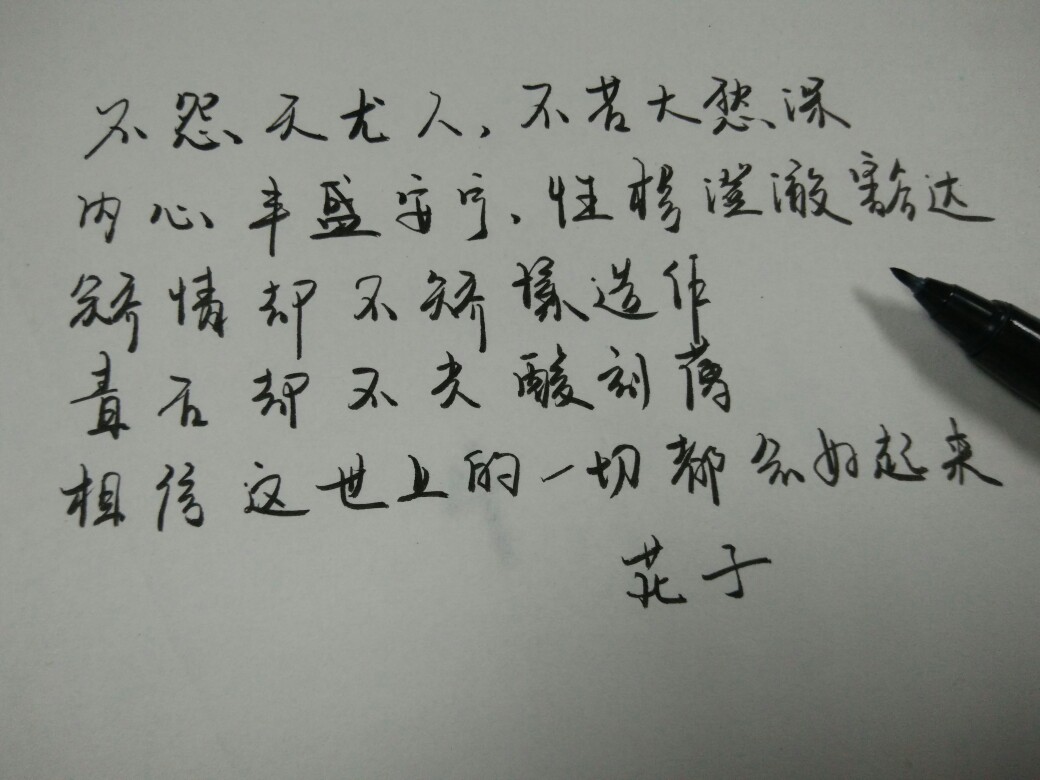 不怨天尤人，不苦大愁深
内心丰盛安宁，性格澄澈豁达
矫情却不矫揉造作
毒舌却不尖酸刻薄
相信这世上的一切都会好起来
花子